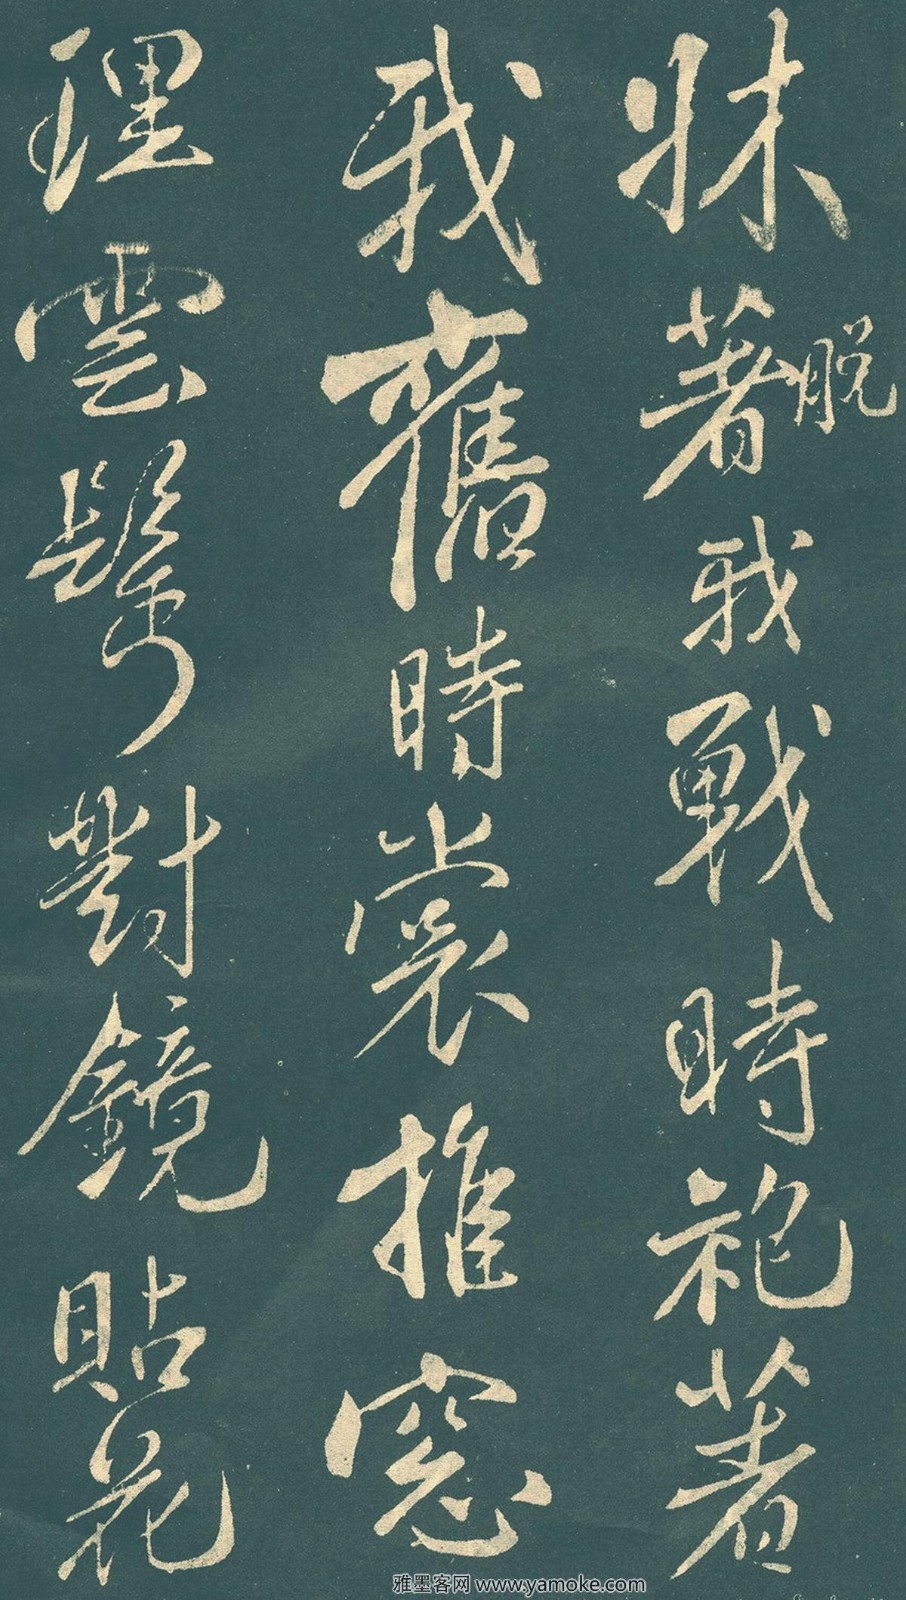 牀著脱我戰時袍著
我舊時裳推窓
理雲鬢對鏡貼花
雅墨客网 www.yamoke.com